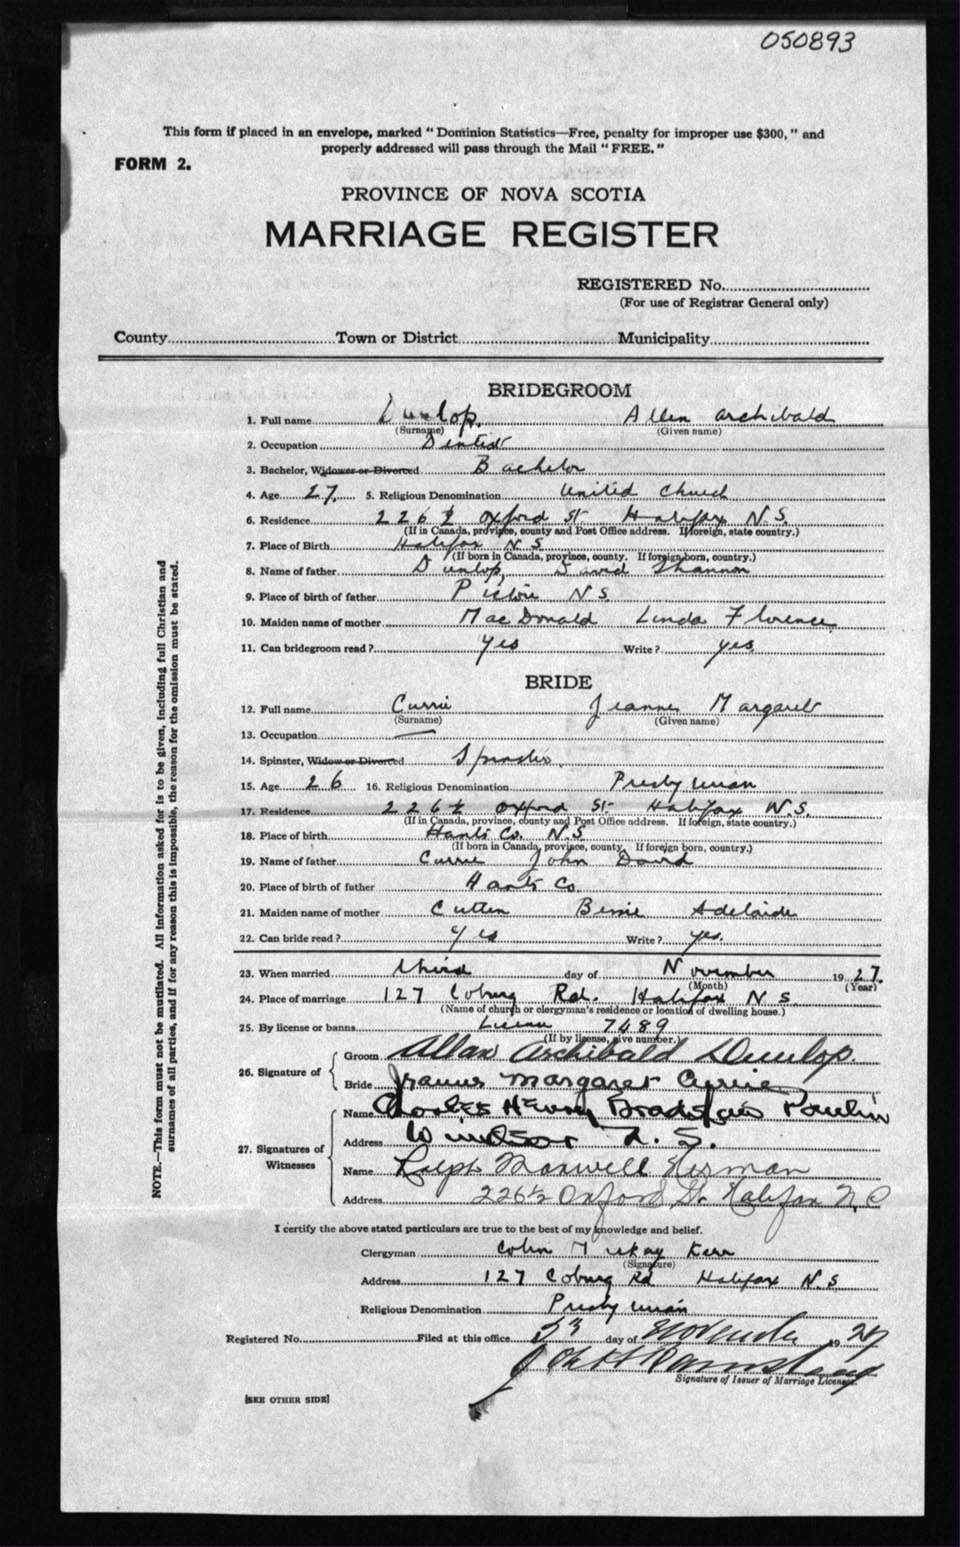 050893
This form if placed in an envelope, marked "Dominion Statistics—Free, penalty for improper use $300," and
properly addressed will pass through the Mail "FREE."
FORM 2.
PROVINCE OF NOVA SCOTIA
MARRIAGE REGISTER
REGISTERED No.
(For use of Registrar General only)
County Town or District Municipality
BRIDEGROOM
1. Full name Dunlop, Allen Archibald
(Surname) (Given name)
2. Occupation Dentist
3. Bachelor, Widower or Divorced Bachelor
4. Age 27. 5. Religious Denomination United Church
6. Residence 226½ Oxford St Halifax N.S.
(If in Canada, province, county and Post Office address. If foreign, state country.)
7. Place of Birth Halifax N S
(If born in Canada, province, county. If foreign born, country.)
8. Name of father Dunlop, David Shannon
9. Place of birth of father Pictou N S
10. Maiden name of mother MacDonald Linda Florence
11. Can bridegroom read? Yes Write? yes
BRIDE
12. Full name Currie Jeanne Margaret
(Surname) (Given name)
13. Occupation —
14. Spinster, Widow or Divorced Spinster.
15. Age 26 16. Religious Denomination Presbyterian
17. Residence 226½ Oxford St Halifax N.S.
(If in Canada, province, county and Post Office address. If foreign, state country.)
18. Place of birth Hants Co. N.S
(If born in Canada, province, county. If foreign born, country.)
19. Name of father Currie John David
20. Place of birth of father Hants Co.
21. Maiden name of mother Cutten Bessie Adelaide
22. Can bride read? Yes Write? yes.
23. When married third day of November 1927.
(Month) (Year)
24. Place of marriage 127 Coburg Rd. Halifax N S.
(Name of church or clergyman's residence or location of dwelling house.)
25. By license or banns License 7489
(If by license, give number.)
26. Signature of
Groom Allan Archibald Dunlop.
Bride Jeanne Margaret Currie
27. Signatures of Witnesses
Name Charles Henry Paulin
Address Windsor N. S.
Name Ralph Maxwell Herman
Address 226½ Oxford St. Halifax N.S
I certify the above stated particulars are true to the best of my knowledge and belief.
Clergyman Colin McKay Kerr
(Signature)
Address 127 Coburg Rd Halifax N.S
Religious Denomination Presbyterian
Registered No. Filed at this office 23 day of November 1927
Signature of Issuer of Marriage Licenses.
[SEE OTHER SIDE]
NOTE.—This form must not be mutilated. All information asked for is to be given, including full Christian and
surnames of all parties, and if for any reason this is impossible, the reason for the omission must be stated.